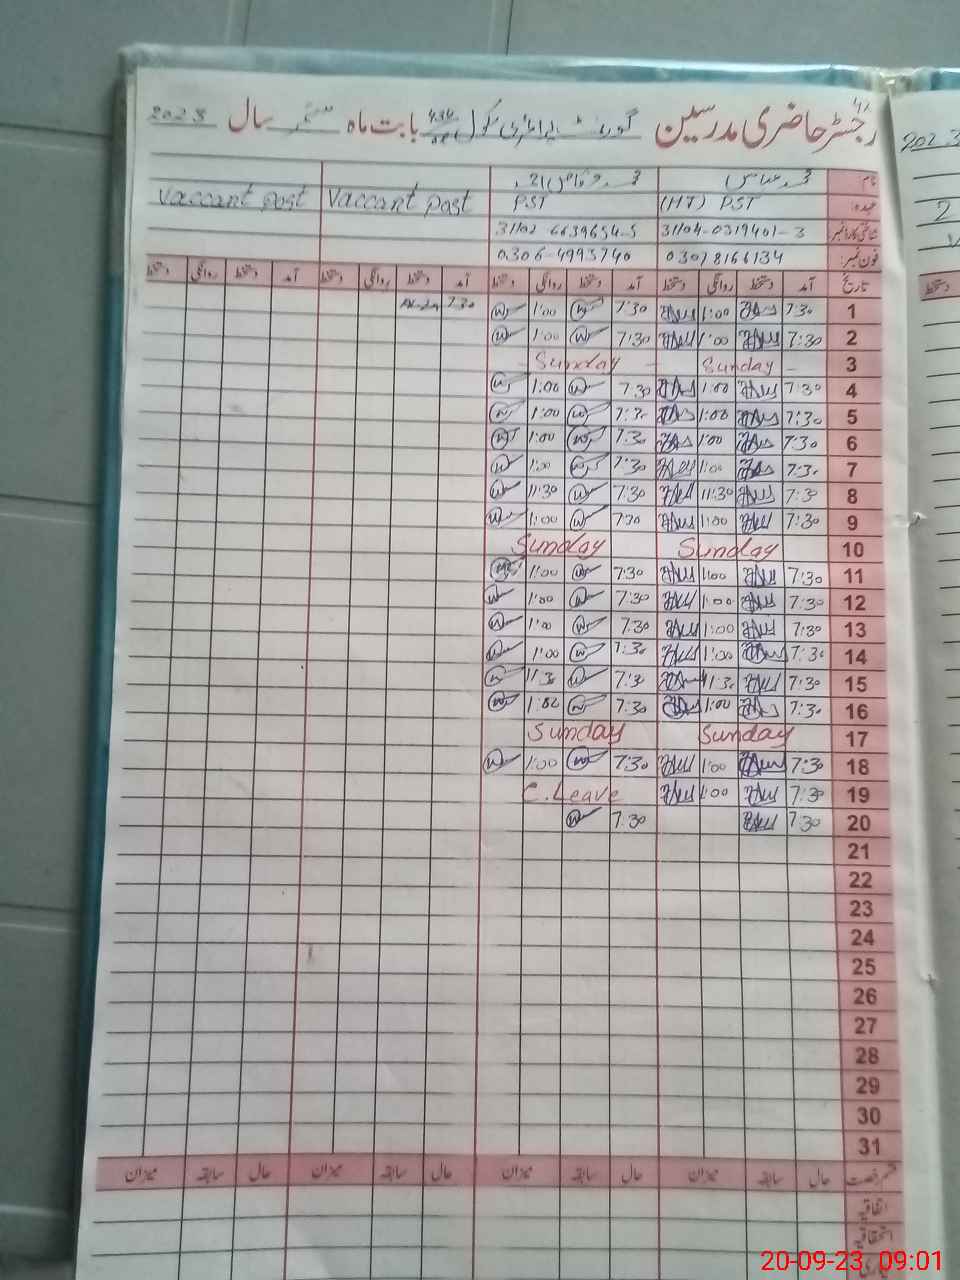 رجسٹر حاضری مدرسین گورنمنٹ پرائمری سکول بابت ماہ ستمبر سال 2023
نام: محمد عباس محمد
عہدہ: (HT) PST PST Vaccant post Vaccant post
شناختی کارڈ نمبر 31104-0319401-3 31102 6639654-5
فون نمبر: 03078166134 0306-4993740
تاریخ آمد دستخط روانگی دستخط آمد دستخط روانگی دستخط آمد دستخط روانگی دستخط آمد دستخط روانگی دستخط
1 7:30 1:00 7:30 1:00 7:30
2 7:30 1:00 7:30 1:00
3 Sunday Sunday
4 7:30 1:00 7:30 1:00
5 7:30 1:00 7:30 1:00
6 7:30 1:00 7:30 1:00
7 7:30 1:00 7:30 1:00
8 7:30 11:30 7:30 11:30
9 7:30 1:00 7:30 1:00
10 Sunday Sunday
11 7:30 1:00 7:30 1:00
12 7:30 1:00 7:30 1:00
13 7:30 1:00 7:30 1:00
14 7:30 1:00 7:30 1:00
15 7:30 11:30 7:30 11:30
16 7:30 1:00 7:30 1:00
17 Sunday Sunday
18 7:30 1:00 7:30 1:00
19 7:30 1:00 C.Leave
20 7:30 7:30
21
22
23
24
25
26
27
28
29
30
31
قسم رخصت حال سابقہ میزان حال سابقہ میزان حال سابقہ میزان حال سابقہ میزان
اتفاقیہ
استحقاقیہ
2023
2
دستخط
20-09-23 09:01